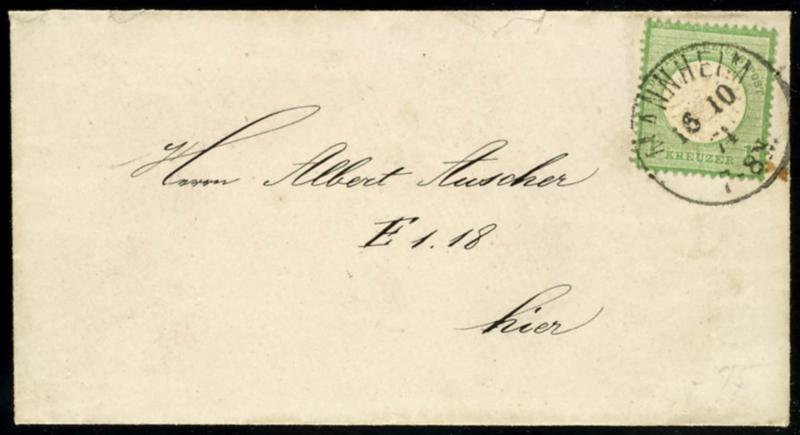 MANNHEIM
18 10
74
7-8N
KREUZER
Herrn Albert Auscher
E 1.18
hier